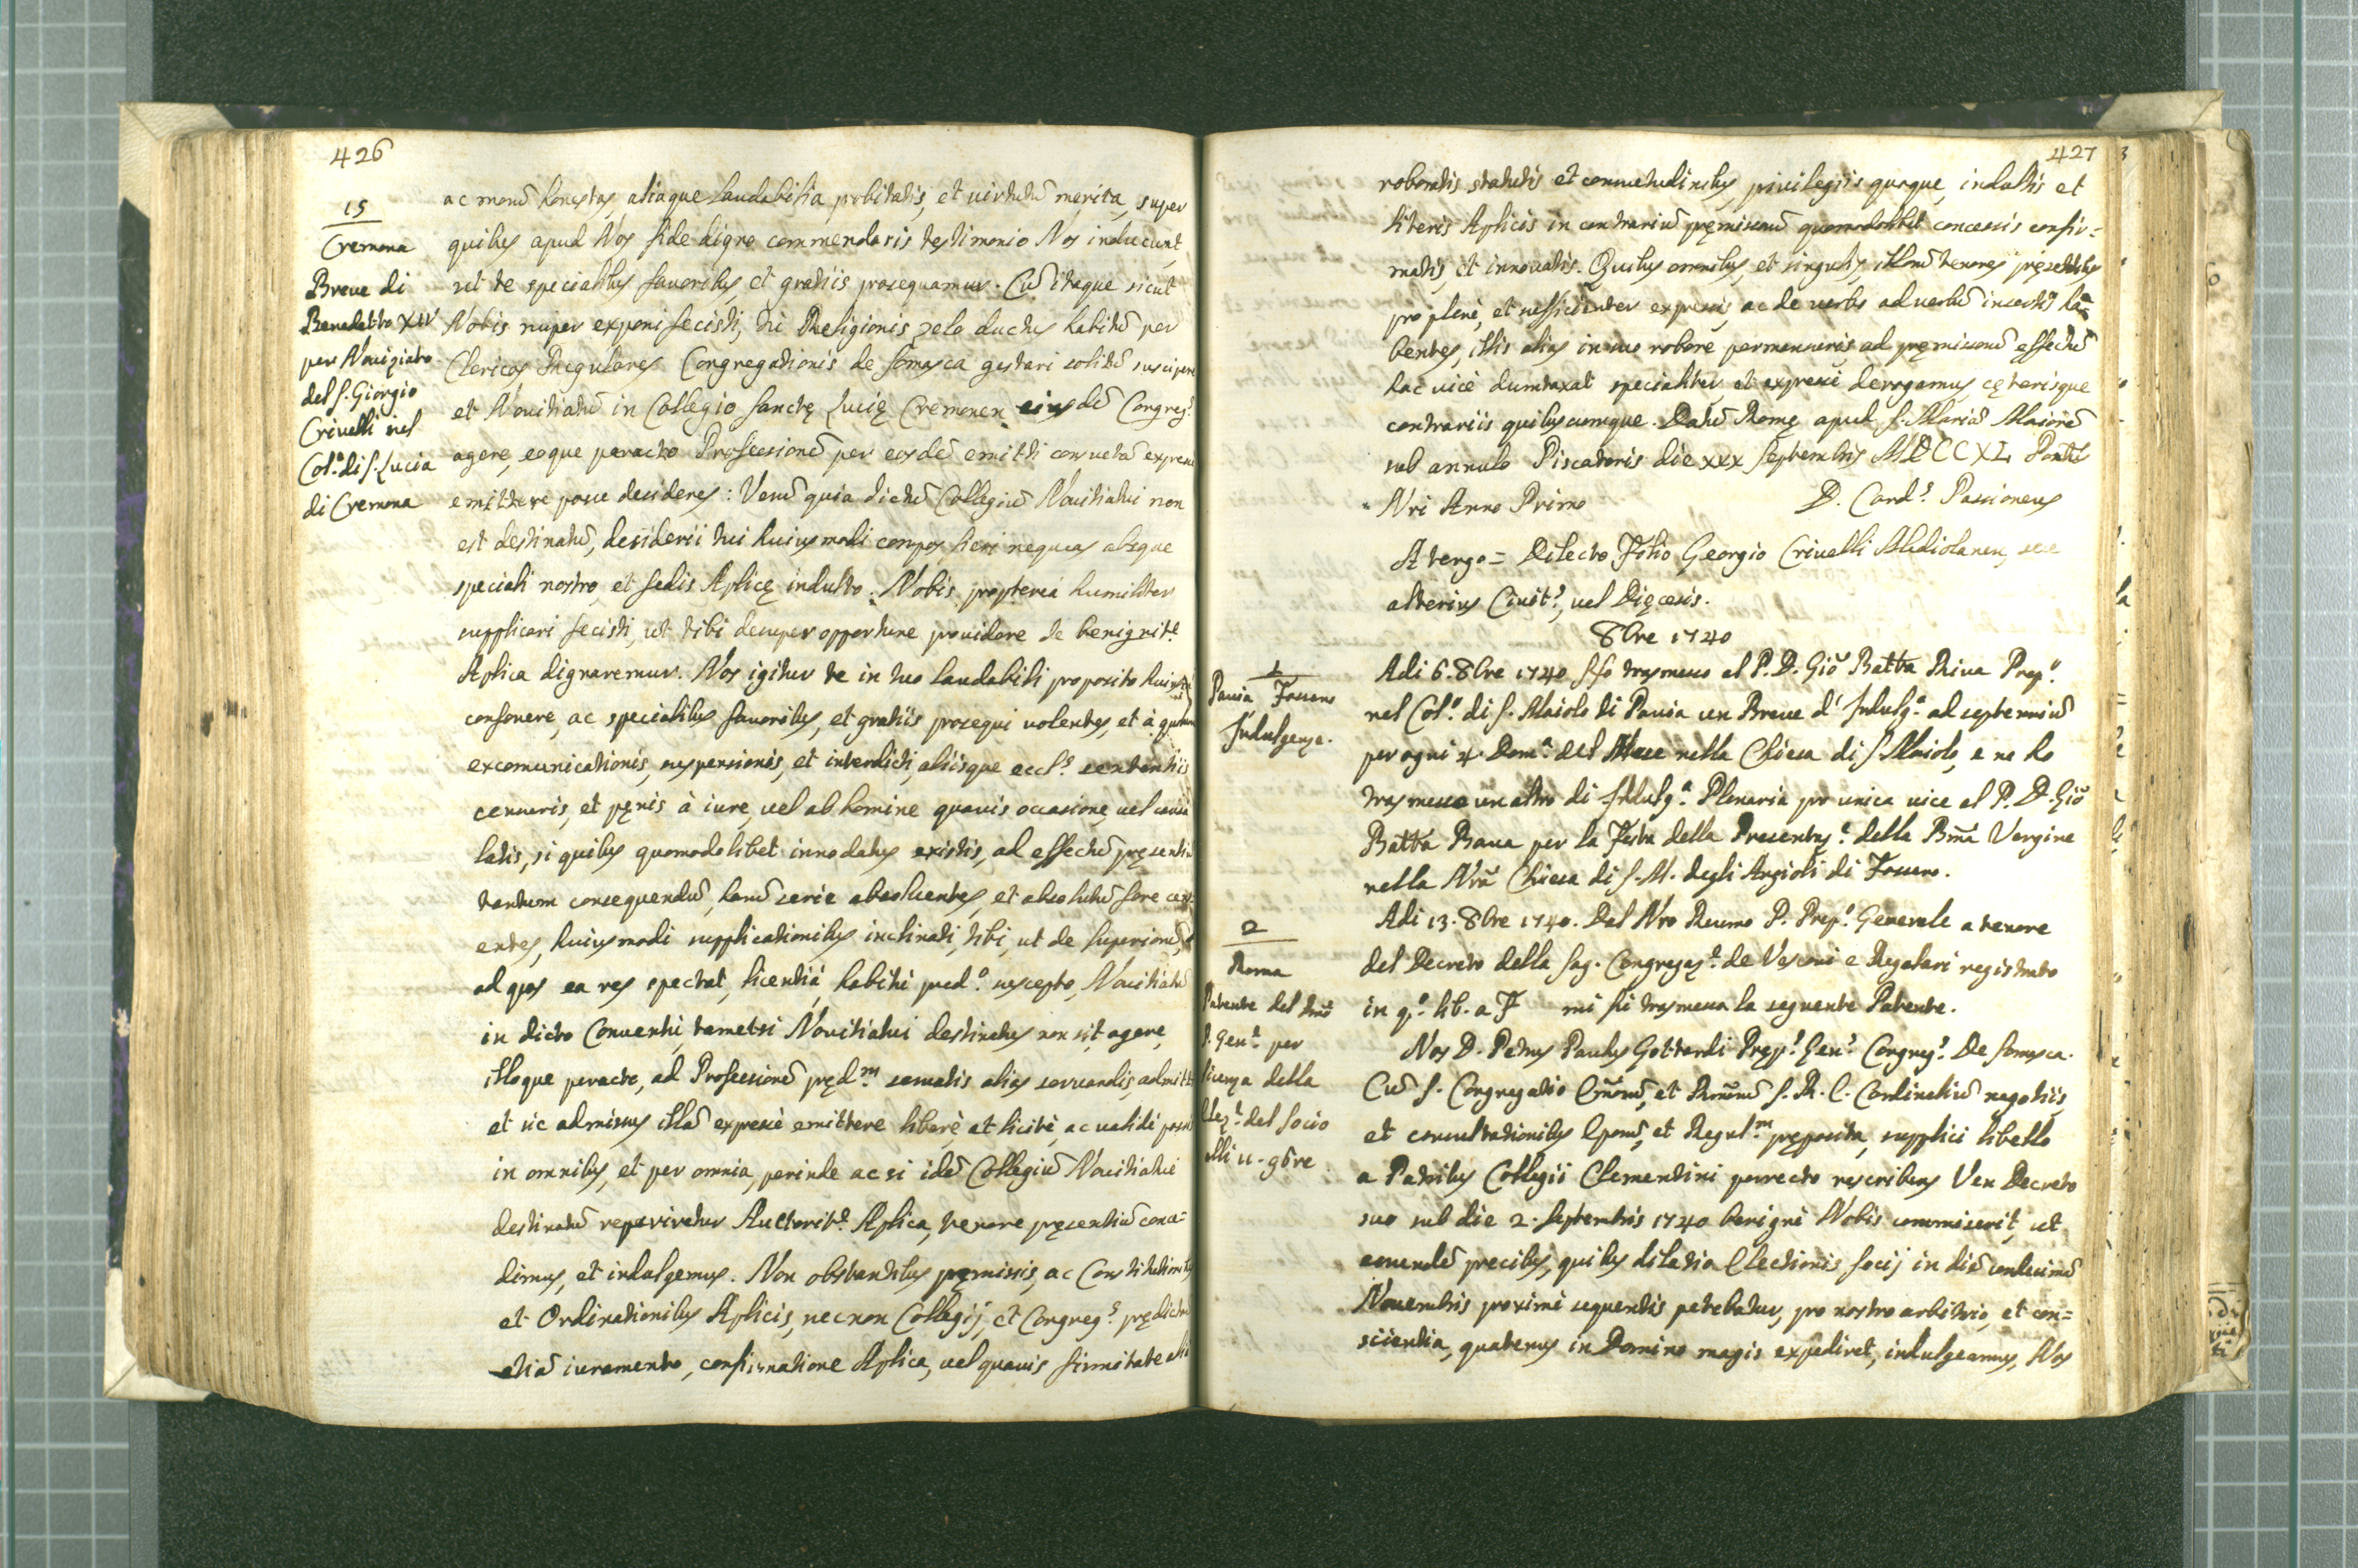 426
15
Cremona
Breve di
Benedetto XIV
per Noviziato
del S. Giorgio
Crivelli nel
Col.º di S. Lucia
di Cremona
ac morū honestas, aliaque laudabilia probitatis, et virtutū merita, super
quibus apud Nos fide digno commendaris testimonio Nos inducunt,
ut te specialibus favoribus, et gratiis prosequamur. Cū itaque sicut
Nobis nuper exponi fecisti, tu Religionis zelo ductus habitū per
Clericos Regulares Congregationis de Somasca gestari solitū suscipere
et Novitiatū in Collegio Sanctę Lucię Cremonen eiusdē Congreg.s
agere, eoque peracto Professionē per eosdē emitti consuetā expresse
emittere posse desideres: Verū quia dictū Collegiū Novitiatui non
est destinatū, desiderii tui huiusmodi compos fieri nequeas absque
speciali nostro, et Sedis Aplicę indulto. Nobis propterea humiliter
supplicari fecisti, ut tibi desuper opportune providere de benignit.e
Aplica dignaremur. Nos igitur te in tuo laudabili proposito huiusm
confovere, ac specialibus favoribus, et gratiis prosequi volentes, et à
excomunicationis, suspensionis, et interdicti, aliisque eccl.s sententiis
censuris, et pęnis à iure, vel ab homine quavis occasione, vel causa
latis, si quibus quomodolibet innodatus existis, ad effectū pręsentiū
tantum consequendū, harū serie absolventes, et absolutū fore cens
entes, huiusmodi supplicationibus inclinati, tibi, ut de Superiorū,
ad quos ea res spectat, licentia, habitu pred.º suscepto, Novitiatū
in dicto Conventu, tametsi Novitiatui destinatus non sit, agere,
illoque peracto, ad Professionē pręd.m servatis alias servandis, admitti
et sic admissus illā expressè emittere liberè, et licitè, ac validè possis
in omnibus, et per omnia, perinde ac si idē Collegiū Novitiatui
destinatū reperiretur Auctorit.e Aplica, tenore pręsentiū conce=
dimus, et indulgemus. Non obstantibus pręmissis, ac Constitutionibus
et Ordinationibus Aplicis, necnon Collegij, et Congreg.s prędictorū
etiā iuramento, confirmatione Aplica, vel quavis firmitate alia
427
roboratis statutis et consuetudinibus, privilegiis quoque, indultis et
literis Aplicis in contrariū pręmissorū quomodolibet concessis confir=
matis, et innovatis. Quibus omnibus, et singulis, illorū tenores pręsentibus
pro plenè, et sufficienter expressis, ac de verbo ad verbū insertis ha=
bentes, illis alias in suo robore permansuris, ad pręmissorū effectū
hac vice dumtaxat specialiter et expressè derogamus, cęterisque
contrariis quibuscumque. Datū Romę apud S. Mariā Maiorē
sub annulo Piscatoris die xxx Septembris MDCCXL Pontus
Nri Anno Primo D. Card.s Passioneus
A tergo = Dilecto Filio Georgio Crivelli Mediolanen, seu
alterius Civit.s, vel Diecesis.
8bre 1740
1
Pavia Fossano
Indulgenze.
Adi 6. 8bre 1740 ho trasmesso al P. D. Giō Batta Riva Prep.º
nel Col.º di S. Maiolo di Pavia un Breve d' Indulg.a ad septenniū
per ogni 4. Dom.a del Mese nella Chiesa di S. Maiolo, e ne ho
trasmesso un altro di Indulg.a Plenaria pro unica vice al P. D. Giō
Batta Bava per la Festa della Presentaz.e della Bma Vergine
nella Nrā Chiesa di S. M. degli Angioli di Fossano.
2
Roma
Patente del Rmō
P. Gen.le per
licenza della
Elez.e del Socio
alli 11. 9bre
Adi 13. 8bre 1740. Dal Nro Rev̄mo P. Prep.º Generale a tenore
del Decreto della Sag. Congregaz.e de Vescovi e Regolari registrato
in q.º lib. a F mi fù trasmessa la seguente Patente.
Nos D. Petrus Paulus Gottardi Pręp.s Gen.s Congreg.s De Somasca.
Cū S. Congregatio Em̄orū, et Rm̄orū S. R. E. Cardinaliū negotiis,
et consultationibus Eporū, et Regul.m pręposita, supplici libello
a Patribus Collegii Clementini porrecto rescribens Ven Decreto
suo sub die 2. Septembris 1740 benignè Nobis commiserit, ut
eorundē precibus, quibus dilatio Electionis Socij in diē undecimā
Novembris proximè sequentis petebatur, pro nostro arbitrio, et con=
scientia, quatenus in Domino magis expediret, indulgeamus, Nos